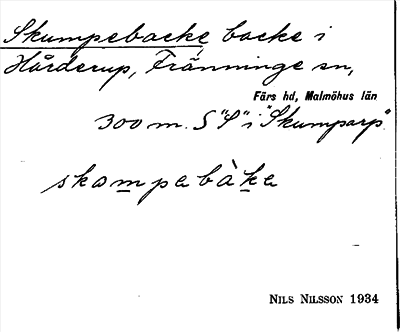 Skumpebacke backe i
Hårderup, Tränninge sn,
Färs hd, Malmöhus län
300 m. S "S" i "Skumparp".
skampabàka
NILS NILSSON 1934